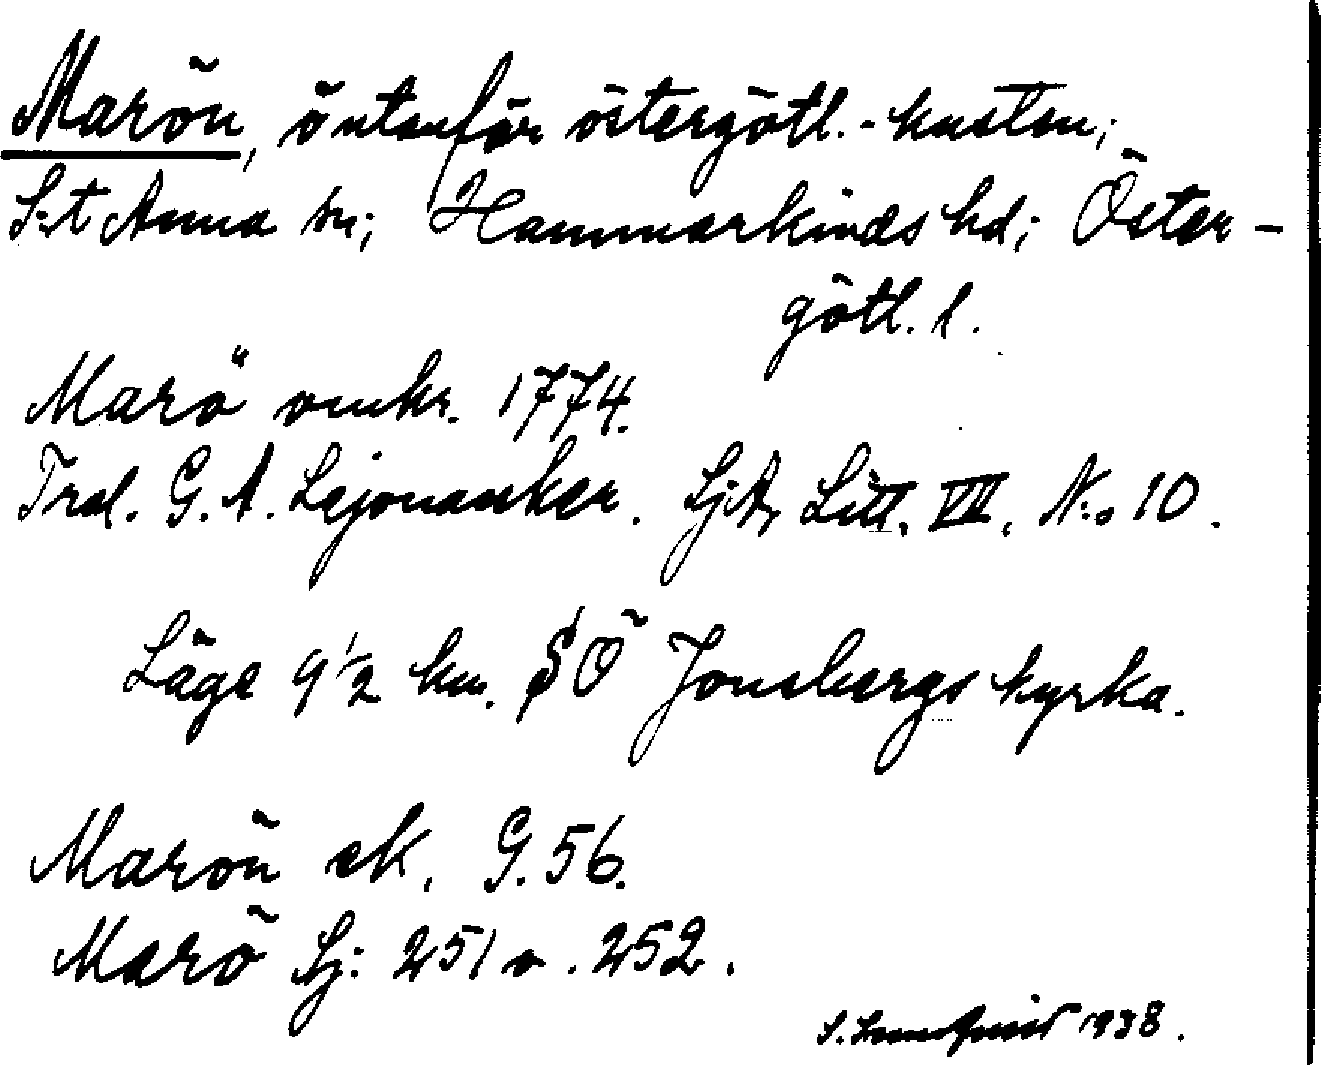 Marön, ö utanför östergötl.-kusten;
S:t Anna sn; Hammarkinds hd; Öster-
götl. l.
Marö omkr. 1774.
Trol. G. A. Lejonanker. SjA, Litt. VII, N:o 10.
Läge 9 1/2 km. SÖ Jonsbergs kyrka.
Marön ek. G. 56.
Marö Sj: 251 o. 252.
1938.